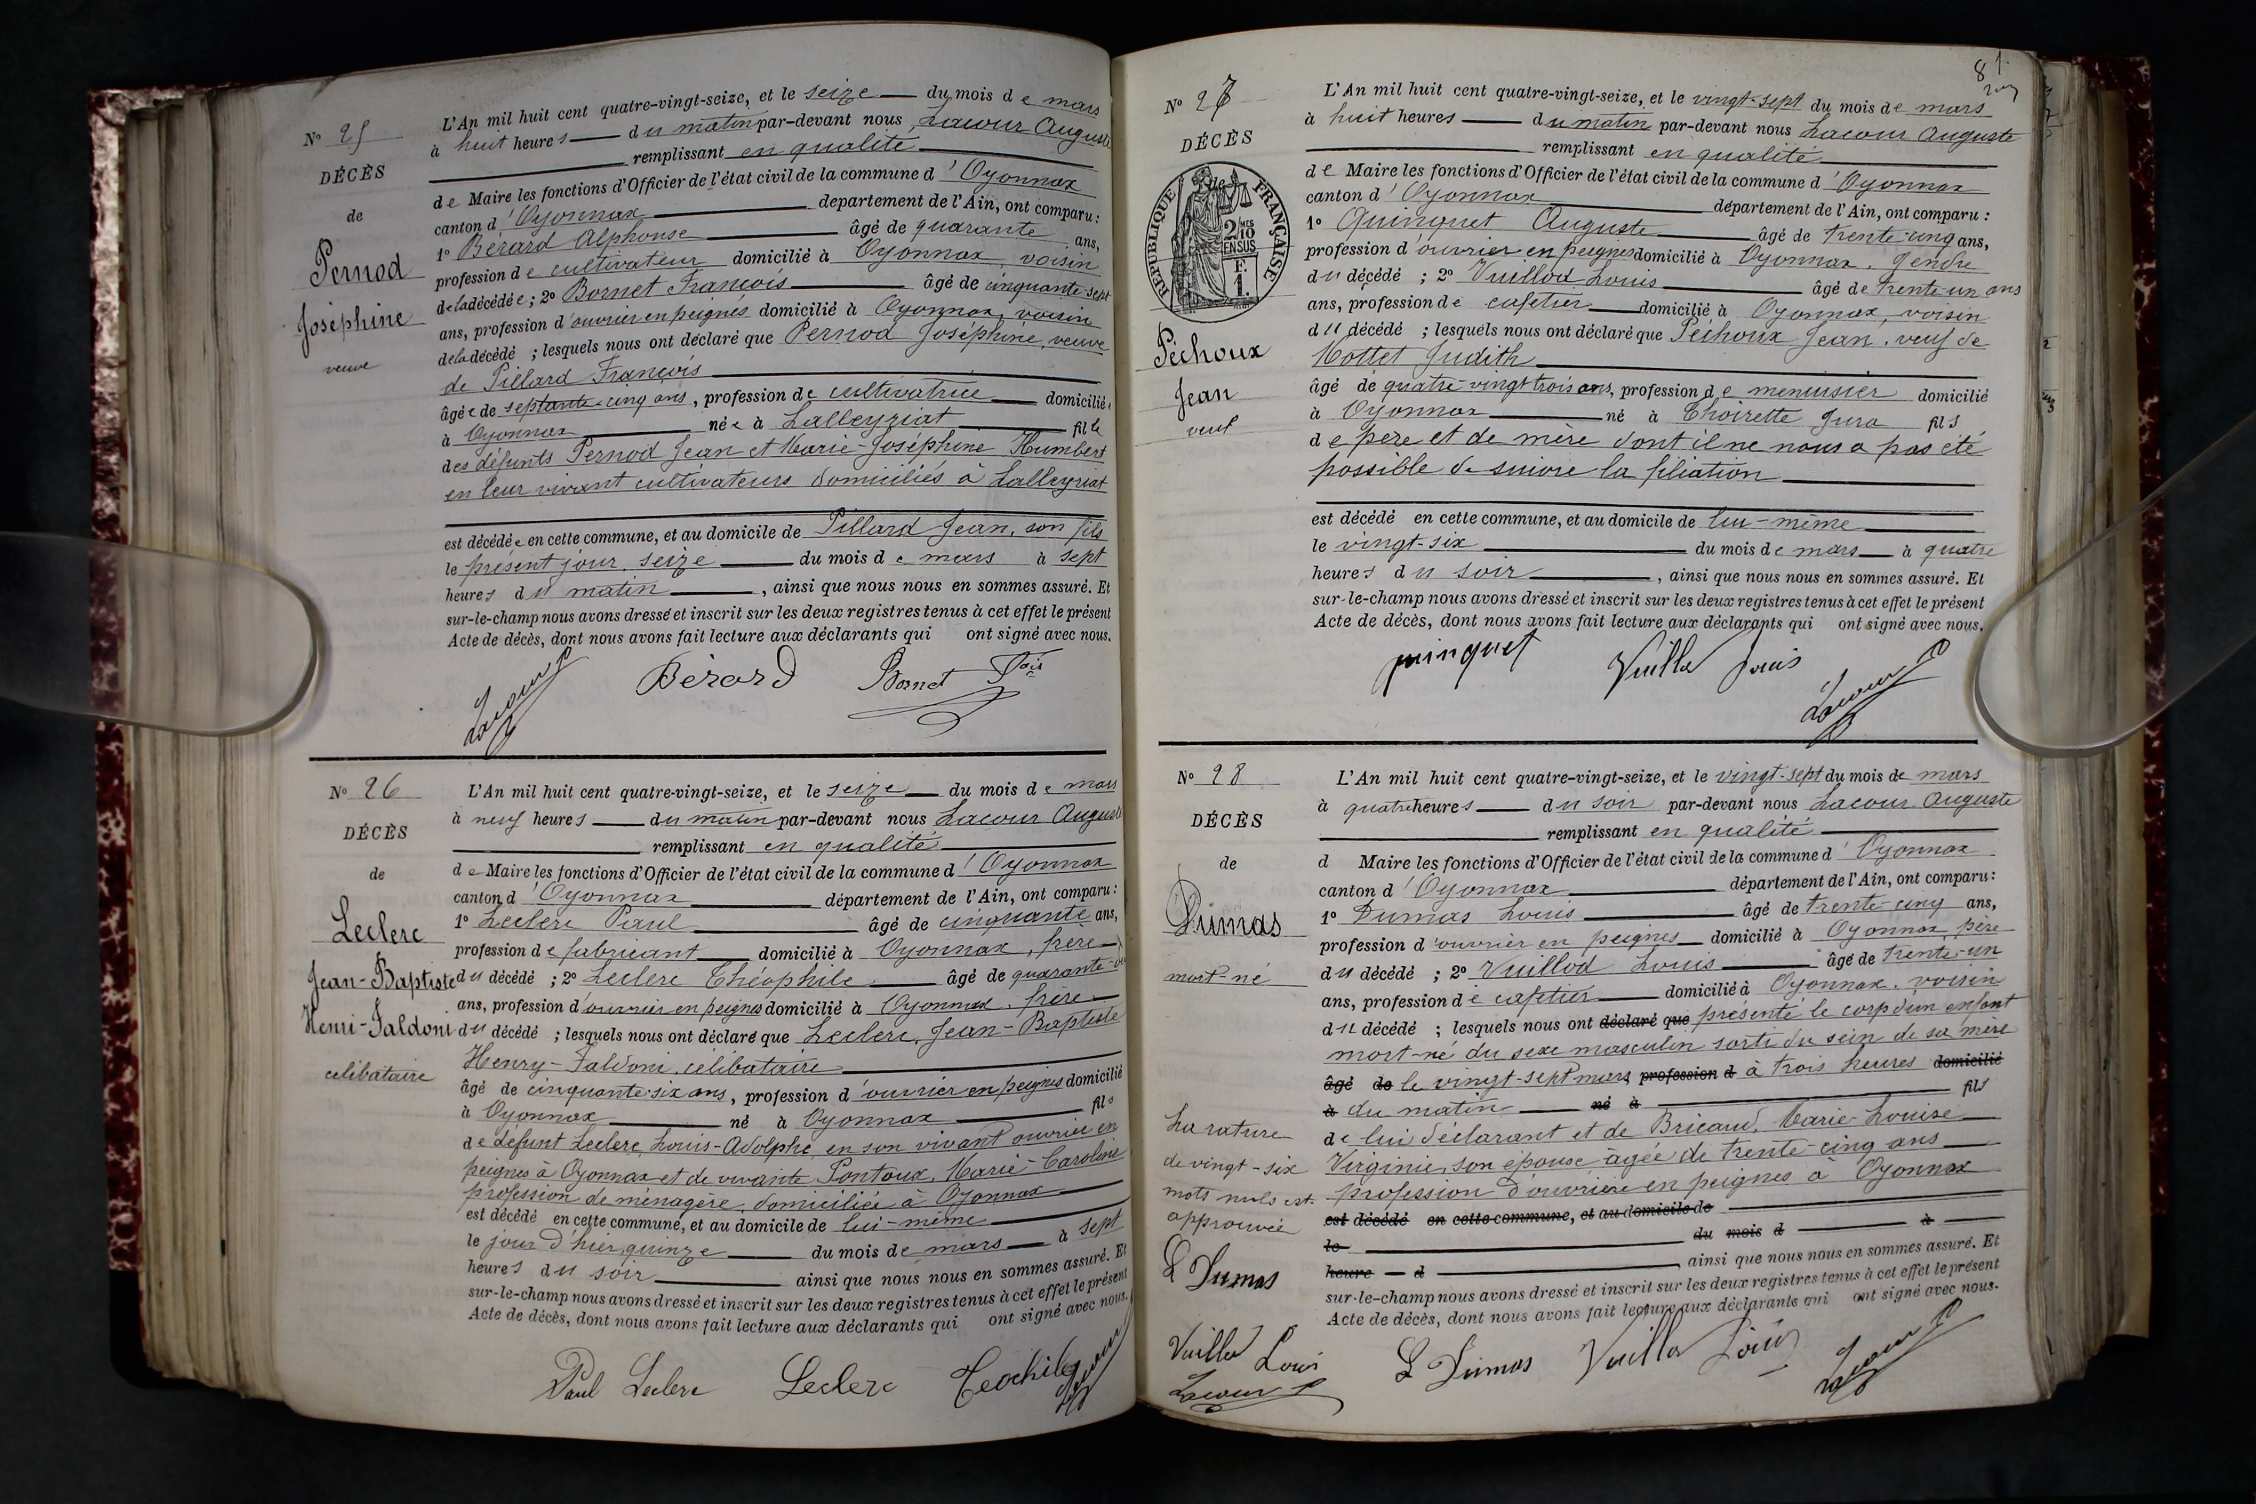 N° 25
DÉCÈS
de
Pernod
Joséphine
veuve
L'An mil huit cent quatre-vingt-seize, et le seize du mois de mars
à huit heures du matin par-devant nous Lacour Auguste
remplissant en qualité
de Maire les fonctions d'Officier de l'état civil de la commune d'Oyonnax
canton d'Oyonnax département de l'Ain, ont comparu :
1° Bérard Alphonse âgé de quarante ans,
profession de cultivateur domicilié à Oyonnax voisin
de la décédée ; 2° Bornet François âgé de cinquante-sept
ans, profession d'ouvrier en peignes domicilié à Oyonnax, voisin
de la décédé ; lesquels nous ont déclaré que Pernod Joséphine, veuve
de Pillard François
âgée de septante-cinq ans, profession de cultivatrice domicilié
à Oyonnax née à Lalleyriat fille
des défunts Pernod Jean et Marie-Joséphine Humbert
en leur vivant cultivateurs domiciliés à Lalleyriat
est décédée en cette commune, et au domicile de Pillard Jean, son fils
le présent jour seize du mois de mars à sept
heures du matin, ainsi que nous nous en sommes assuré. Et
sur-le-champ nous avons dressé et inscrit sur les deux registres tenus à cet effet le présent
Acte de décès, dont nous avons fait lecture aux déclarants qui ont signé avec nous.
Lacour Bérard Bornet Fois
N° 26
DÉCÈS
de
Leclerc
Jean-Baptiste
Henri-Faldoni
célibataire
L'An mil huit cent quatre-vingt-seize, et le seize du mois de mars
à neuf heures du matin par-devant nous Lacour Auguste
remplissant en qualité
de Maire les fonctions d'Officier de l'état civil de la commune d'Oyonnax
canton d'Oyonnax département de l'Ain, ont comparu :
1° Leclerc Paul âgé de cinquante ans,
profession de fabricant domicilié à Oyonnax, frère
du décédé ; 2° Leclerc Théophile âgé de quarante
ans, profession d'ouvrier en peignes domicilié à Oyonnax, frère
du décédé ; lesquels nous ont déclaré que Leclerc, Jean-Baptiste
Henry-Faldoni, célibataire
âgé de cinquante-six ans, profession d'ouvrier en peignes domicilié
à Oyonnax né à Oyonnax fils
de défunt Leclerc, Louis-Adolphe, en son vivant ouvrier en
peignes à Oyonnax et de vivante Pontoux, Marie-Caroline
profession de ménagère, domiciliée à Oyonnax
est décédé en cette commune, et au domicile de lui-même
le jour d'hier quinze du mois de mars à sept
heures du soir ainsi que nous nous en sommes assuré. Et
sur-le-champ nous avons dressé et inscrit sur les deux registres tenus à cet effet le présent
Acte de décès, dont nous avons fait lecture aux déclarants qui ont signé avec nous.
Paul Leclerc Leclerc Teochile Lacour
81
N° 27
DÉCÈS
de
RÉPUBLIQUE FRANÇAISE
2/10 MES
EN SUS
F.
1.
Péchoux
Jean
veuf
L'An mil huit cent quatre-vingt-seize, et le vingt-sept du mois de mars
à huit heures du matin par-devant nous Lacour Auguste
remplissant en qualité
de Maire les fonctions d'Officier de l'état civil de la commune d'Oyonnax
canton d'Oyonnax département de l'Ain, ont comparu :
1° Quinquet Auguste âgé de trente-cinq ans,
profession d'ouvrier en peignes domicilié à Oyonnax, gendre
du décédé ; 2° Vuillod Louis âgé de trente-un ans
ans, profession de cafetier domicilié à Oyonnax, voisin
du décédé ; lesquels nous ont déclaré que Péchoux Jean, veuf de
Mottet Judith
âgé de quatre-vingt-trois ans, profession de menuisier domicilié
à Oyonnax né à Thoirette Jura fils
de père et de mère dont il ne nous a pas été
possible de suivre la filiation
est décédé en cette commune, et au domicile de lui-même
le vingt-six du mois de mars à quatre
heures du soir, ainsi que nous nous en sommes assuré. Et
sur-le-champ nous avons dressé et inscrit sur les deux registres tenus à cet effet le présent
Acte de décès, dont nous avons fait lecture aux déclarants qui ont signé avec nous.
quinquet Vuillod Louis Lacour
N° 28
DÉCÈS
de
Dumas
mort-né
La rature
de vingt-six
mots nuls est
approuvée
L Dumas
Vuillod Louis
Lacour
L'An mil huit cent quatre-vingt-seize, et le vingt-sept du mois de mars
à quatre heures du soir par-devant nous Lacour Auguste
remplissant en qualité
d Maire les fonctions d'Officier de l'état civil de la commune d'Oyonnax
canton d'Oyonnax département de l'Ain, ont comparu :
1° Dumas Louis âgé de trente-cinq ans,
profession d'ouvrier en peignes domicilié à Oyonnax père
du décédé ; 2° Vuillod Louis âgé de trente-un
ans, profession de cafetier domicilié à Oyonnax, voisin
du décédé ; lesquels nous ont déclaré que présenté le corp d'un enfant
mort-né du sexe masculin sorti du sein de sa mère
âgé de le vingt-sept mars profession d à trois heures domicilié
à du matin né à fils
de lui déclarant et de Bricaud, Marie-Louise
Virginie, son épouse âgée de trente-cinq ans
profession d'ouvrière en peignes à Oyonnax
est décédé en cette commune, et au domicile de
le du mois d à
heure d ainsi que nous nous en sommes assuré. Et
sur-le-champ nous avons dressé et inscrit sur les deux registres tenus à cet effet le présent
Acte de décès, dont nous avons fait lecture aux déclarants qui ont signé avec nous.
L Dumas Vuillod Louis Lacour